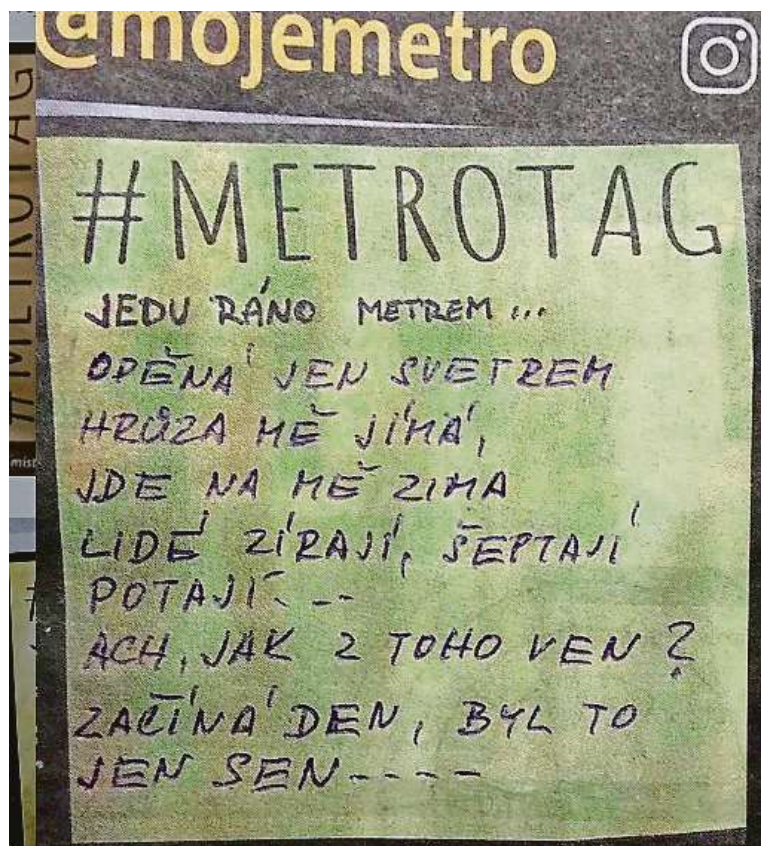 @mojemetro
#METROTAG
JEDU RÁNO METREM...
ODĚNÁ JEN SVETREM
HRŮZA MĚ JÍMÁ,
JDE NA MĚ ZIMA
LIDÉ ZÍRAJÍ, ŠEPTAJÍ
POTAJÍ. --
ACH, JAK Z TOHO VEN?
ZAČÍNÁ DEN, BYL TO
JEN SEN----
#METROTAG